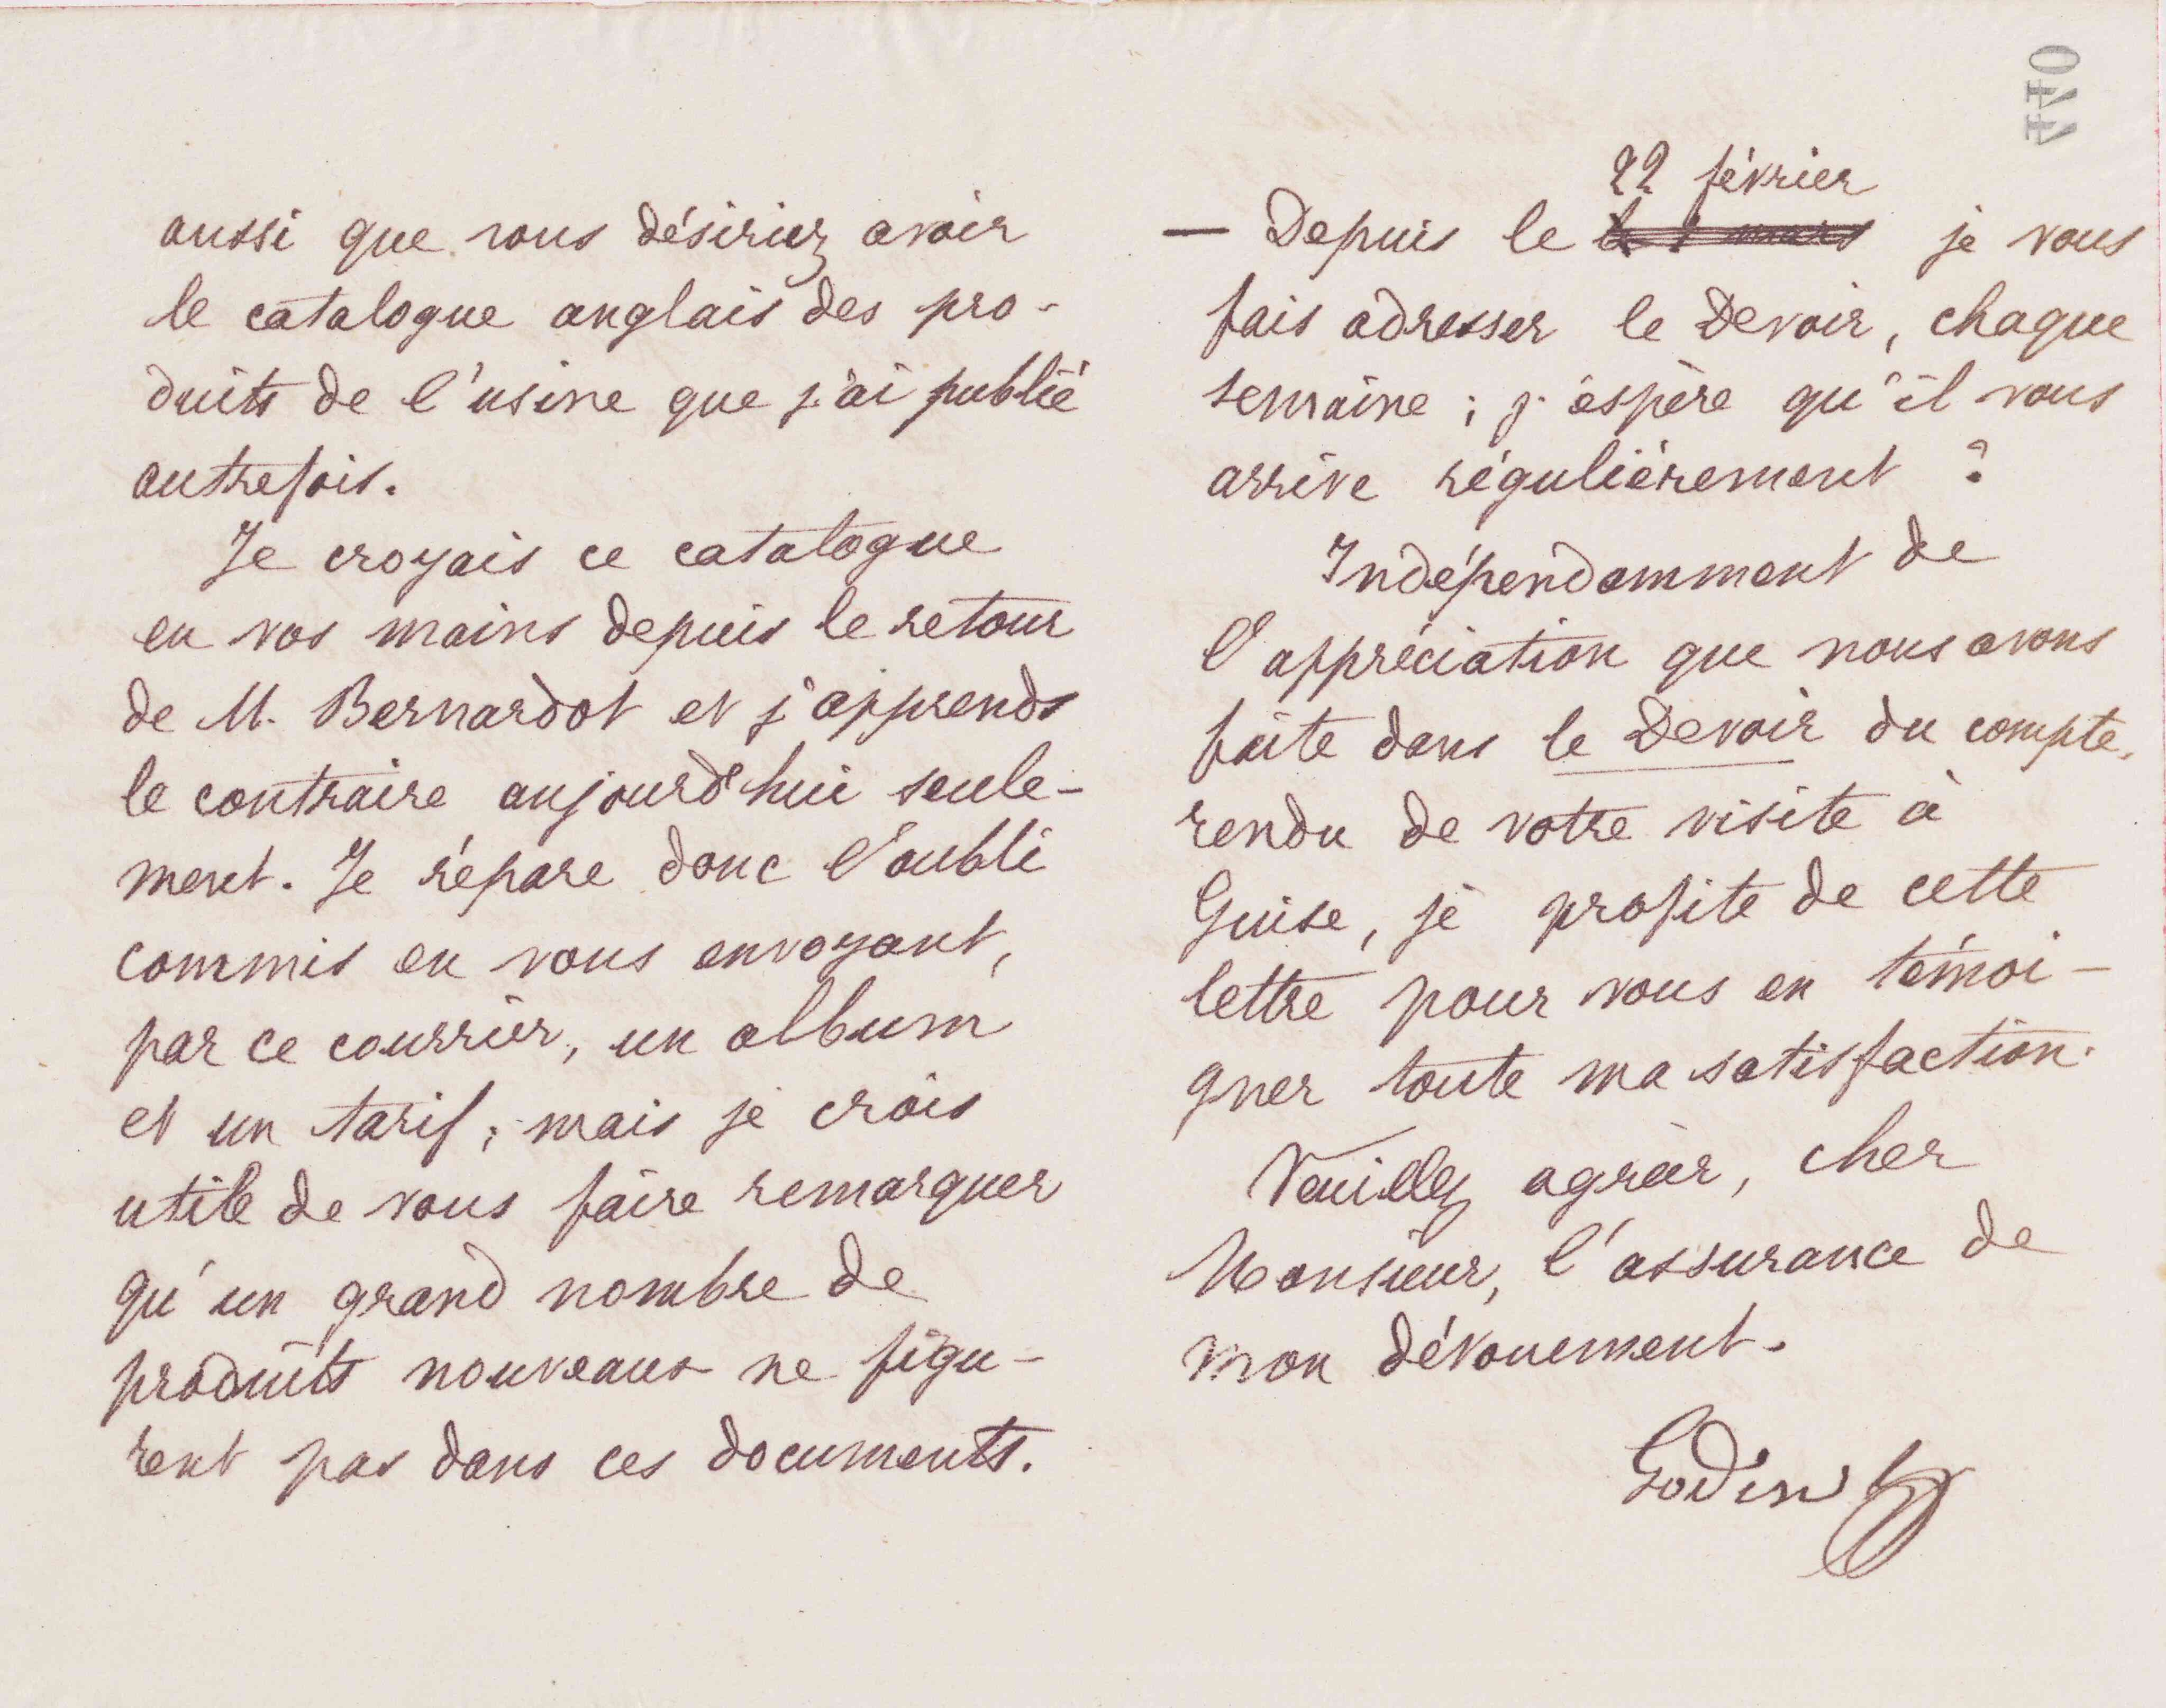 aussi que vous désiriez avoir
le catalogue anglais des pro-
duits de l'usine que j'ai publié
autrefois.
Je croyais ce catalogue
en vos mains depuis le retour
de M. Bernardot et j'apprends
le contraire aujourd'hui seule-
ment. Je répare donc l'oubli
commis en vous envoyant,
par ce courrier, un album
et un tarif; mais je crois
utile de vous faire remarquer
qu'un grand nombre de
produits nouveaux ne figu-
rent pas dans ces documents.
440
22 février
— Depuis le je vous
fais adresser le Devoir, chaque
semaine; j'espère qu'il vous
arrive régulièrement ?
Indépendamment de
l'appréciation que nous avons
faite dans le Devoir du compte-
rendu de votre visite à
Guise, je profite de cette
lettre pour vous en témoi-
gner toute ma satisfaction.
Veuillez agréer, cher
Monsieur, l'assurance de
mon dévouement.
Godin